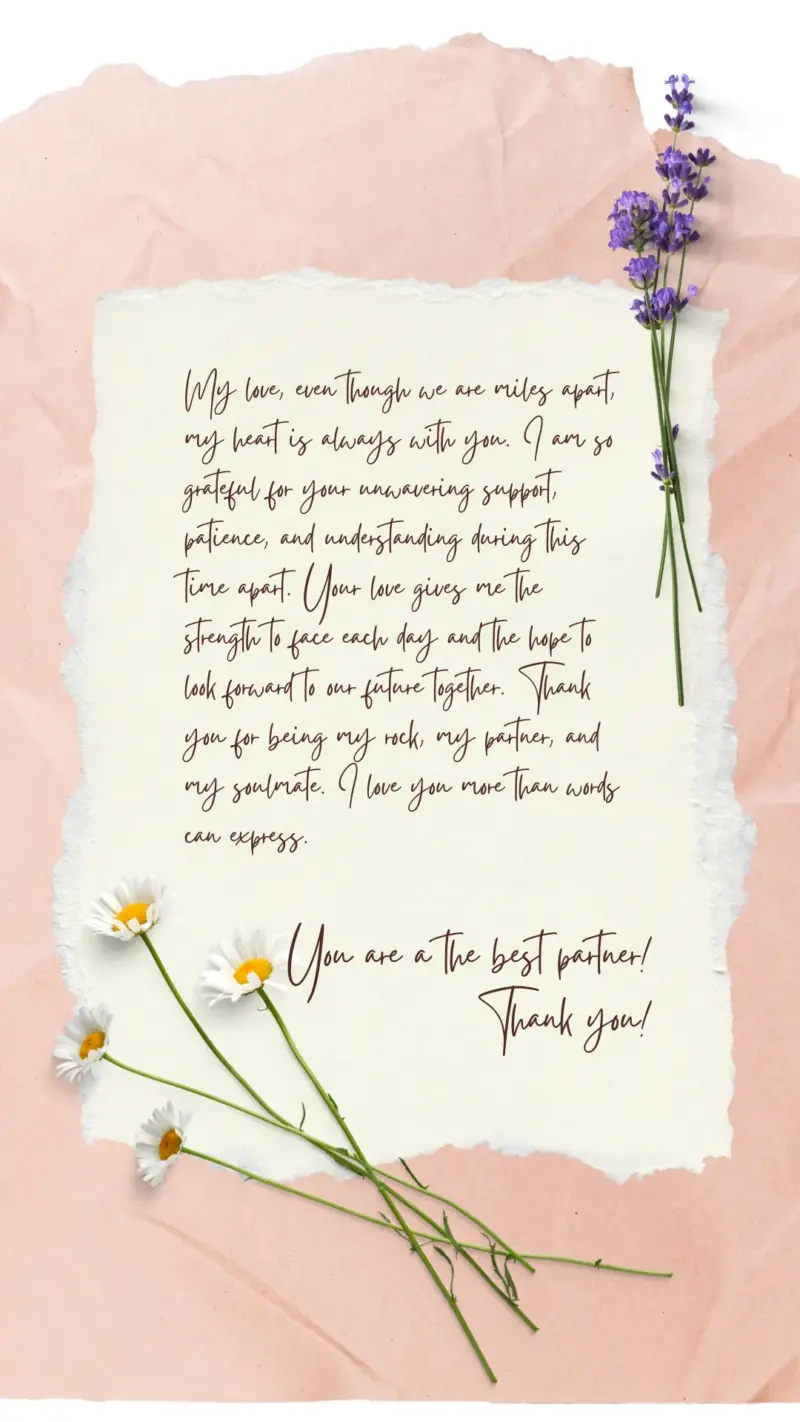 My love, even though we are miles apart,
my heart is always with you. I am so
grateful for your unwavering support,
patience, and understanding during this
time apart. Your love gives me the
strength to face each day and the hope to
look forward to our future together. Thank
you for being my rock, my partner, and
my soulmate. I love you more than words
can express.
You are a the best partner!
Thank you!